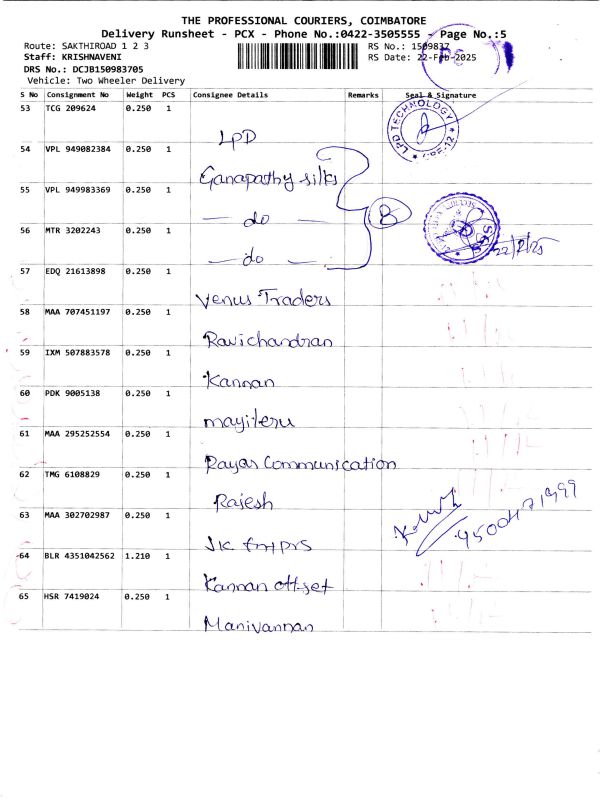 THE PROFESSIONAL COURIERS, COIMBATORE
Delivery Runsheet - PCX - Phone No.:0422-3505555 - Page No.:5
Route: SAKTHIROAD 1 2 3 RS No.: 1509837
Staff: KRISHNAVENI RS Date: 22-Feb-2025
DRS No.: DCJB150983705
Vehicle: Two Wheeler Delivery
S No Consignment No Weight PCS Consignee Details Remarks Seal & Signature
53 TCG 209624 0.250 1
LPD
LPD TECHNOLOGY
54 VPL 949082384 0.250 1
Ganapathy silks
55 VPL 949983369 0.250 1
— do —
56 MTR 3202243 0.250 1
— do —
22/2/25
57 EDQ 21613898 0.250 1
Venus Traders
58 MAA 707451197 0.250 1
Ravichandran
59 IXM 507883578 0.250 1
Kannan
60 PDK 9005138 0.250 1
61 MAA 295252554 0.250 1
Rayar Communication
62 TMG 6108829 0.250 1
Rajesh
63 MAA 302702987 0.250 1
64 BLR 4351042562 1.210 1
Kannan off-set
65 HSR 7419024 0.250 1
Manivannan